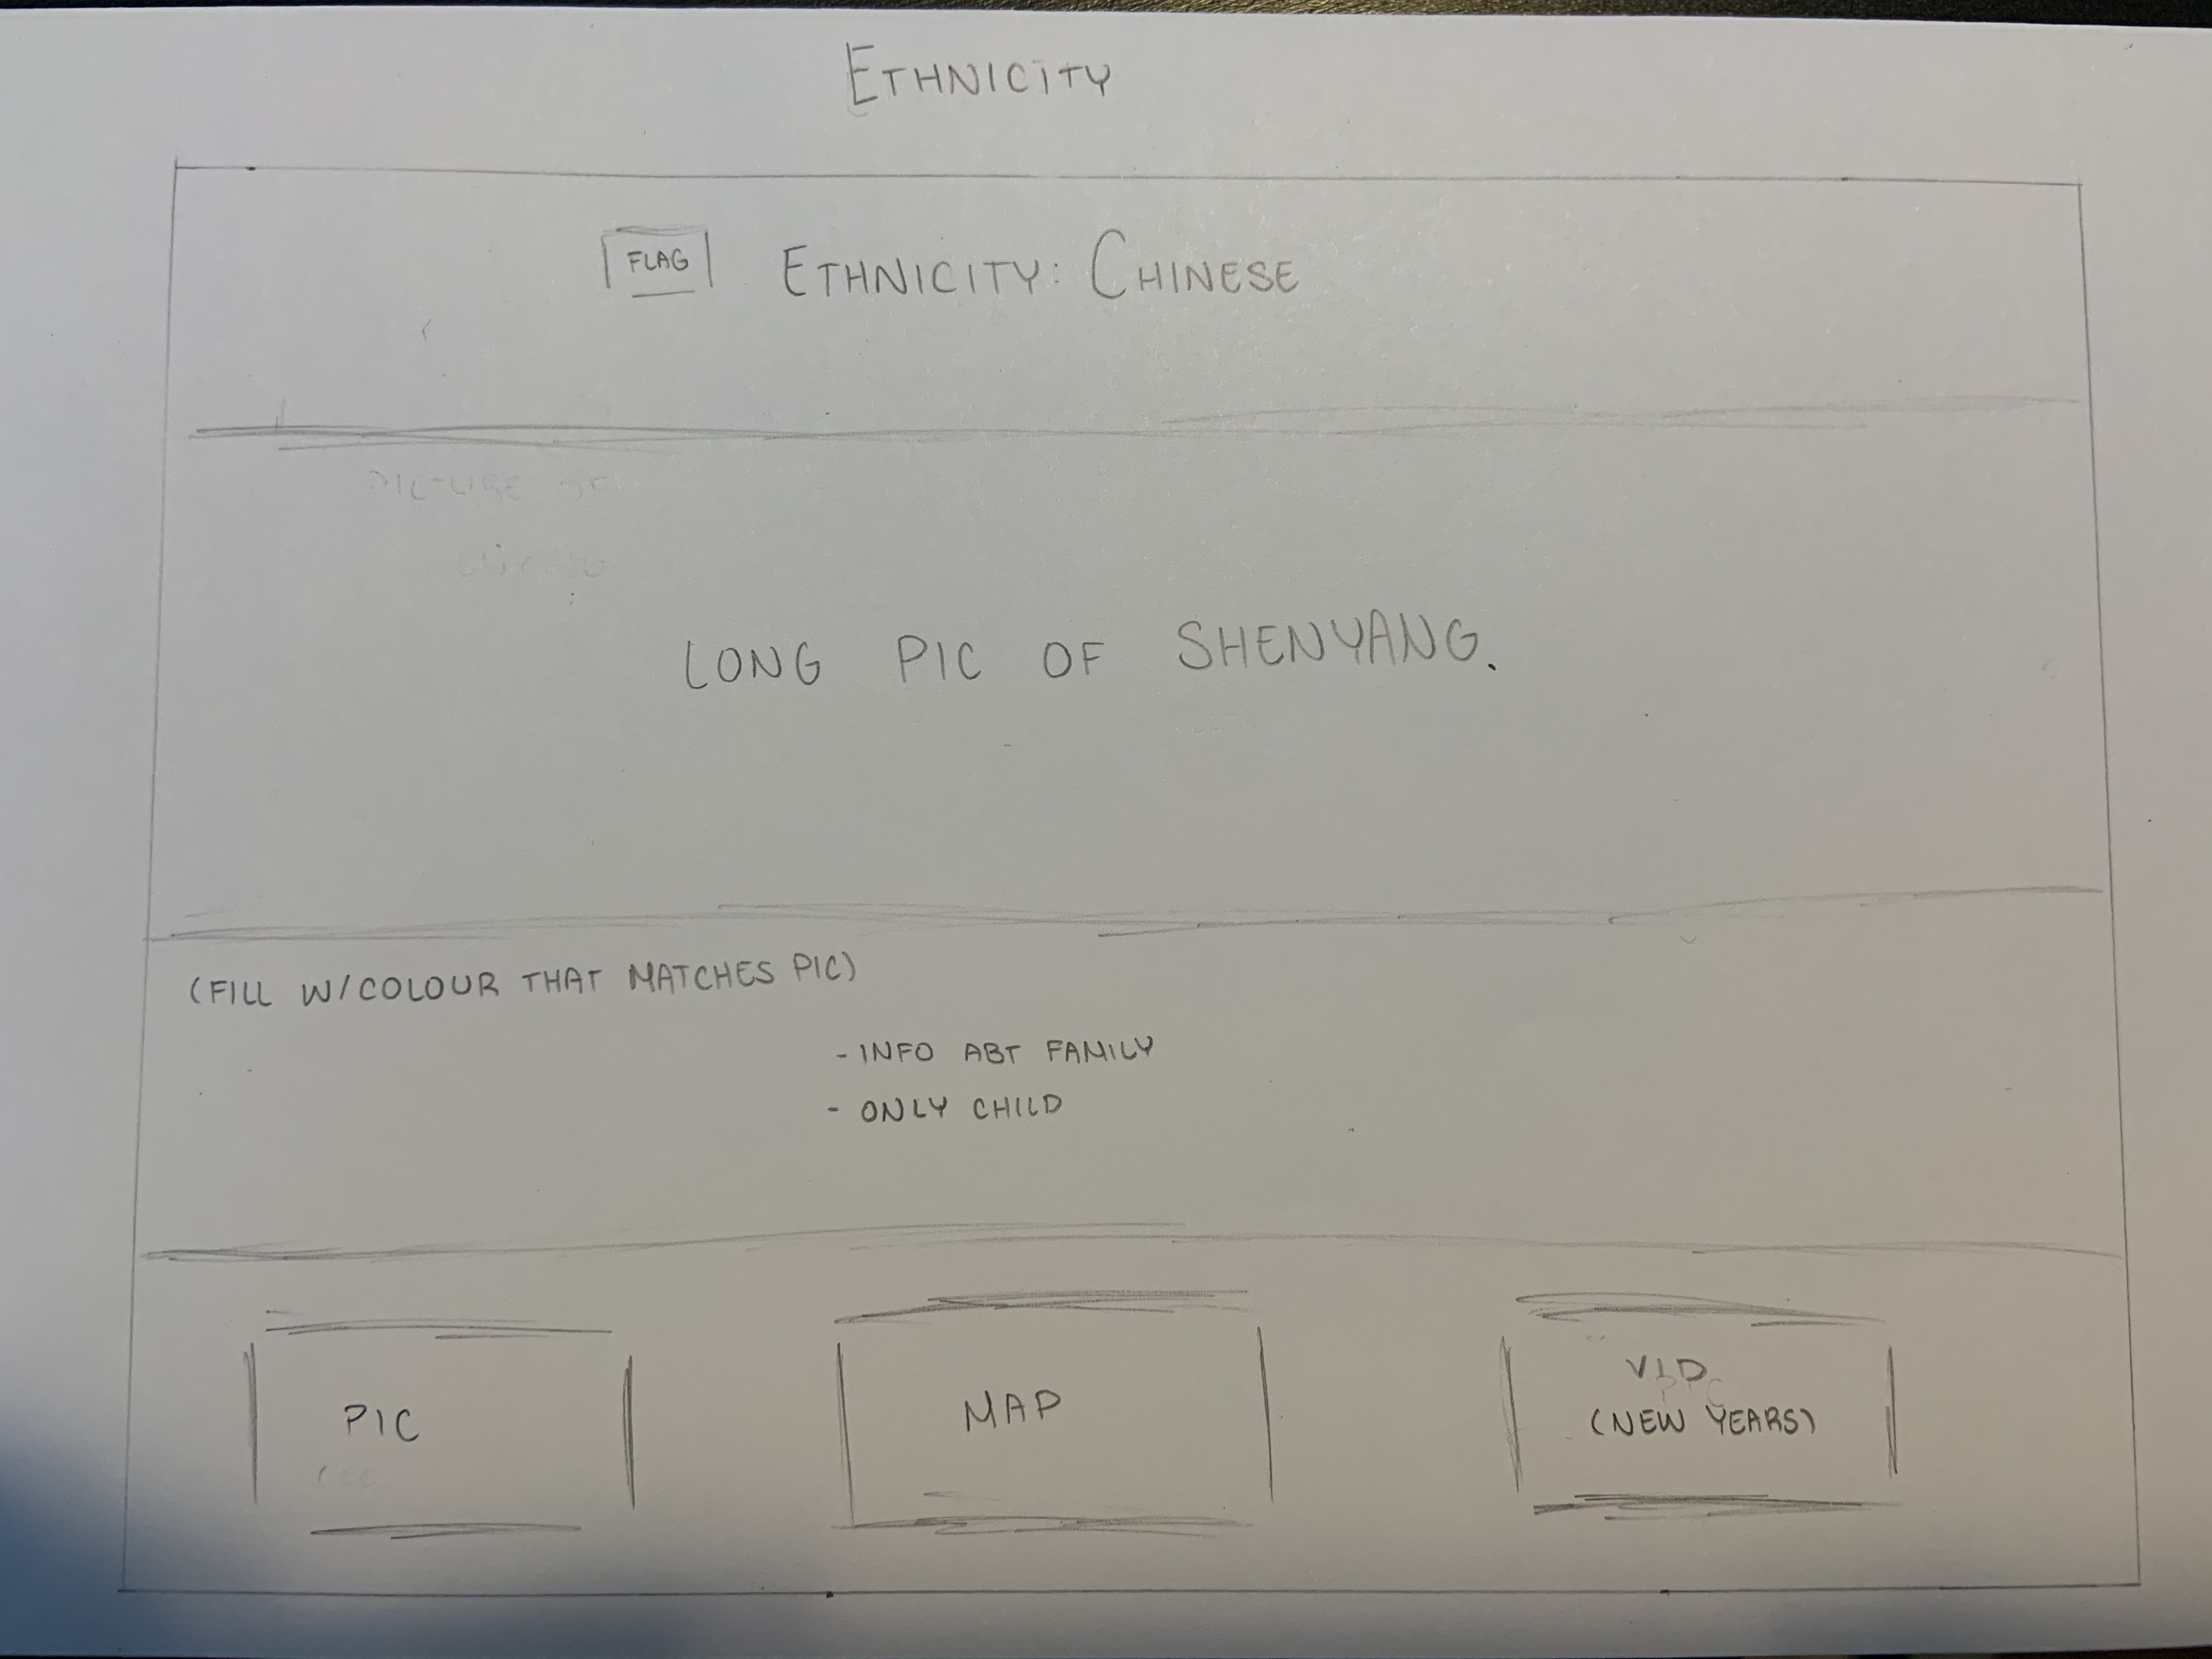 ETHNICITY
FLAG ETHNICITY: CHINESE
LONG PIC OF SHENYANG.
(FILL W/COLOUR THAT MATCHES PIC)
- INFO ABT FAMILY
- ONLY CHILD
PIC
MAP
VID
(NEW YEARS)